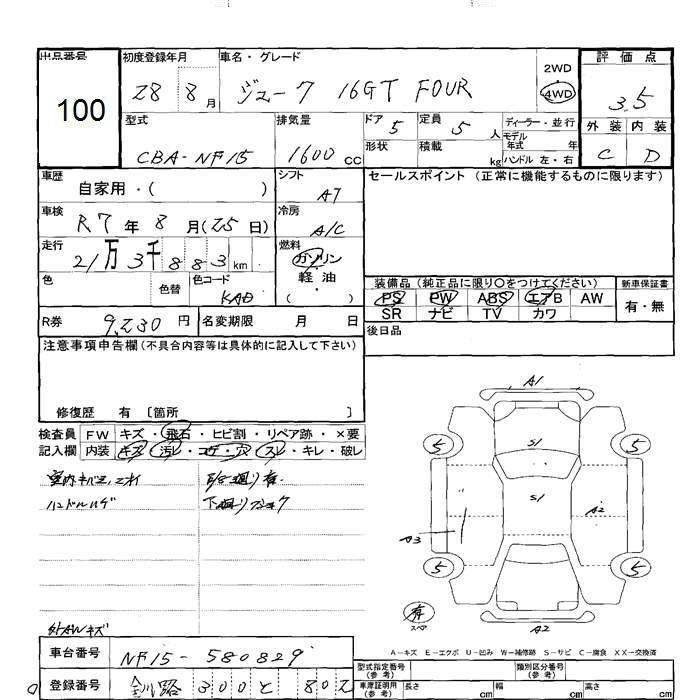 出品番号
100
初度登録年月
28 8 月
車名・グレード
ジューク 16GT FOUR
2WD
4WD
評価点
3.5
外装 内装
C D
型式
CBA-NF15
排気量
1600 cc
ドア 5
定員 5 人
ディーラー・並行
モデル年式 年
形状
積載 kg
ハンドル 左・右
車歴
自家用・( )
シフト
AT
セールスポイント (正常に機能するものに限ります)
車検
R7 年 8 月(25日)
冷房
A/C
走行
21万3千883 km
燃料
ガソリン・
軽・油
( )
色
色替
色コード
KAD
装備品 (純正品に限り○をつけてください)
PS PW ABS エアB AW
SR ナビ TV カワ
新車保証書
有・無
R券 9,230 円
名変期限 月 日
後日品
注意事項申告欄 (不具合内容等は具体的に記入して下さい)
修復歴 有 〔箇所 〕
検査員
記入欄
FW キズ・飛石・ヒビ割・リペア跡・×要
内装 キズ・汚レ・コゲ・穴・スレ・キレ・破レ
ハンドルハゲ
外AWキズ
A1
S1
S1
A2
A3
5
5
5
5
有
スペア
A2
A-キズ E-エクボ U-凹み W-補修跡 S-サビ C-腐食 XX-交換済
車台番号 NF15-580829
登録番号 釧路 300 と 802
型式指定番号
(参考)
類別区分番号
(参考)
車庫証明用
(参考)
長さ cm
幅 cm
高さ cm